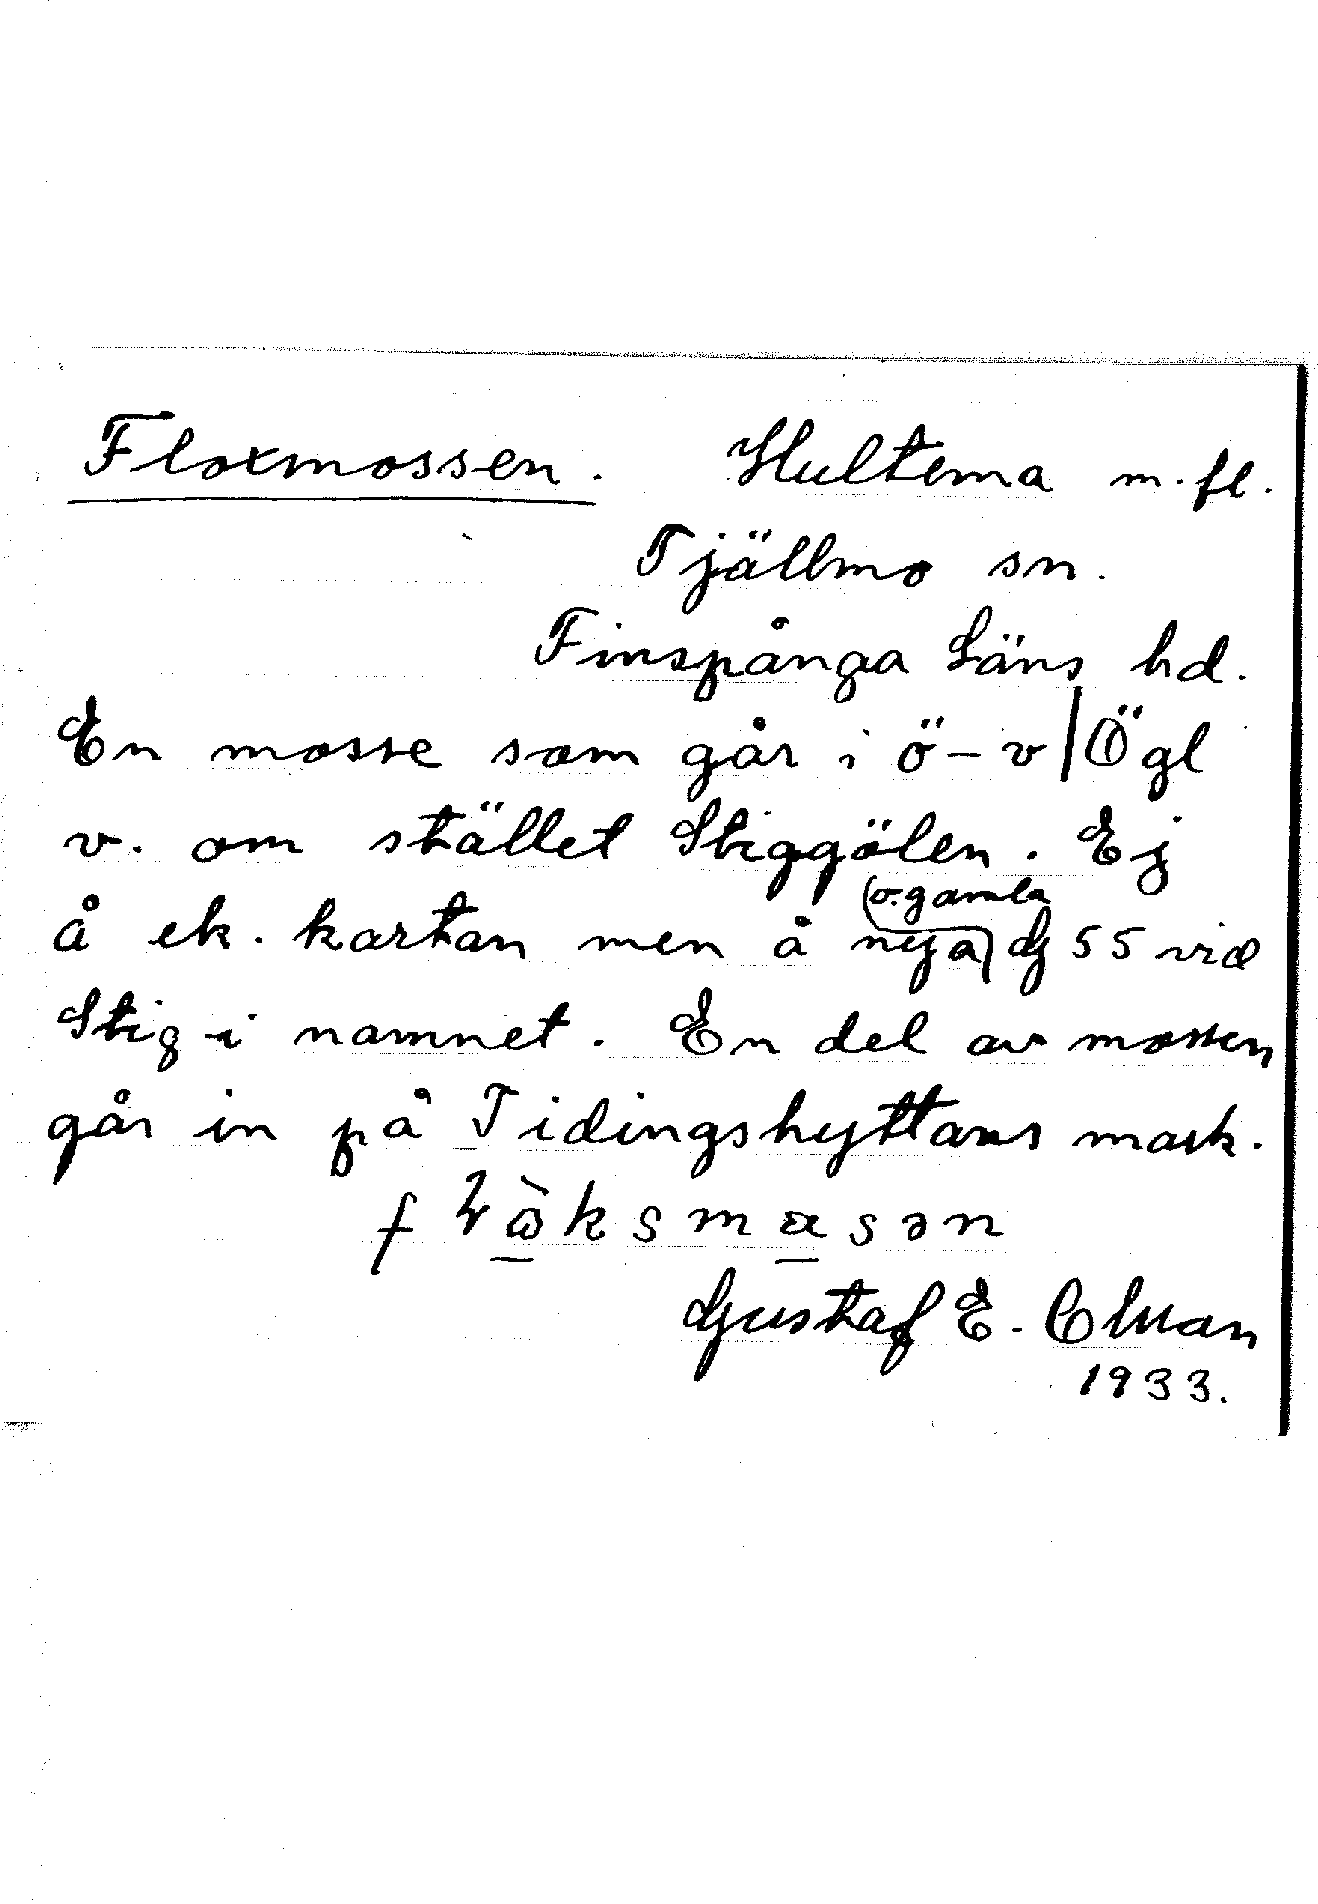 Floxmossen. Hultema m. fl.
Tjällmo sn.
Finspånga Läns hd.
En mosse som går i ö-v | Ögl
v. om stället Stiggölen. Ej
(o. gamla
å ek. kartan men å nya) G 55 vid
Stig-i namnet. En del av mossen
går in på Tidingshyttans mark.
Gustaf E. Elman
1933.